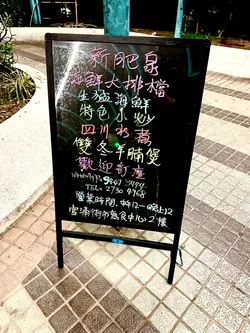 新肥泉
海鮮大排檔
生猛海鮮
特色小炒
四川水煮
雙冬羊腩煲
歡迎訂座
WhatsApp:
TEL: 2730 4908
營業時間:中午12-晚上12
宮浦街市熟食中心2樓